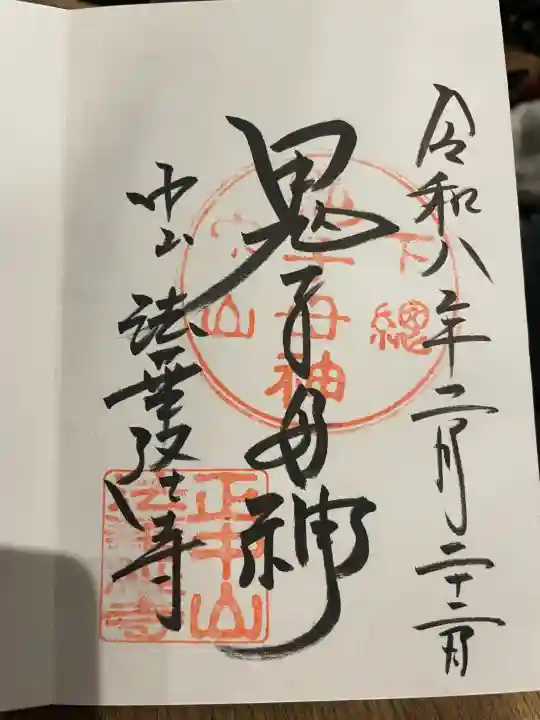 令和八年二月二十二日
鬼子母神
中山 法華経寺
下總
鬼子母神
中山
正中山
法華経寺